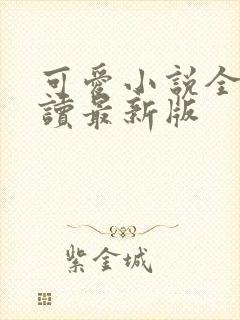 可愛小説全
讀最新版
紫金城